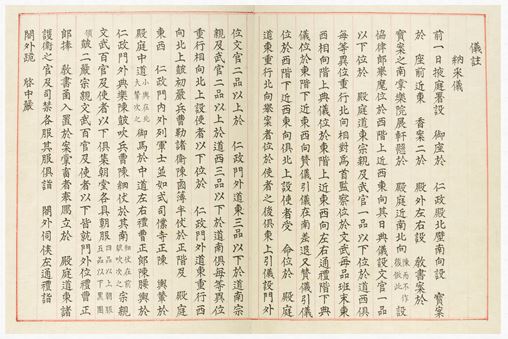 儀註
納采儀
前一日掖庭署設 御座於 仁政殿北壁南向設 寶案
於 座前近東 香案二於 殿外左右設 敎書案於
寶案之南掌樂院展軒懸於 殿庭近南北向陳而不作後倣此設
協律郎擧麾位於西階上近西東向其日典儀設文官一品
以下位於 殿庭道東宗親及武官一品以下位於道西俱
每等異位重行北向相對爲首監察位於文武每品班末東
西相向階上典儀位於東階上近東西向左右通禮階下典
儀位於東階下近東西向贊儀引儀在南差退又贊儀引儀
位於西階下近西東向俱北上設使者受 命位於 殿庭
道東重行北向擧案者位於使者之後俱東上引儀設門外
位文官二品以上於 仁政門外道東三品以下於道南宗
親及武官二品以上於道西三品以下於道南俱每等異位
重行相向北上設使者以下位於 仁政門外道東重行西
向北上鼓初嚴兵曹勒諸衛陳鹵簿半仗於正階及 殿庭
東西 仁政門內外列軍士並如式司僕寺正陳 輿輦於
殿庭中道小輿在北大輦次之 御馬於中道左右禮曹正郎陳腰輿於
仁政門外典樂陳鼓吹兵曹陳細仗於其南細仗在前鼓吹次之宗親
文武百官及使者以下俱集朝堂各具朝服四品以上朝服五品以下黑團
領鼓二嚴宗親文武百官及使者以下皆就門外位禮曹正
郎捧 敎書函入置於案掌畜者牽鴈立於 殿庭道東諸
護衛之官及司禁各服其服俱詣 閤外伺候左通禮詣
閤外跪 啓中嚴